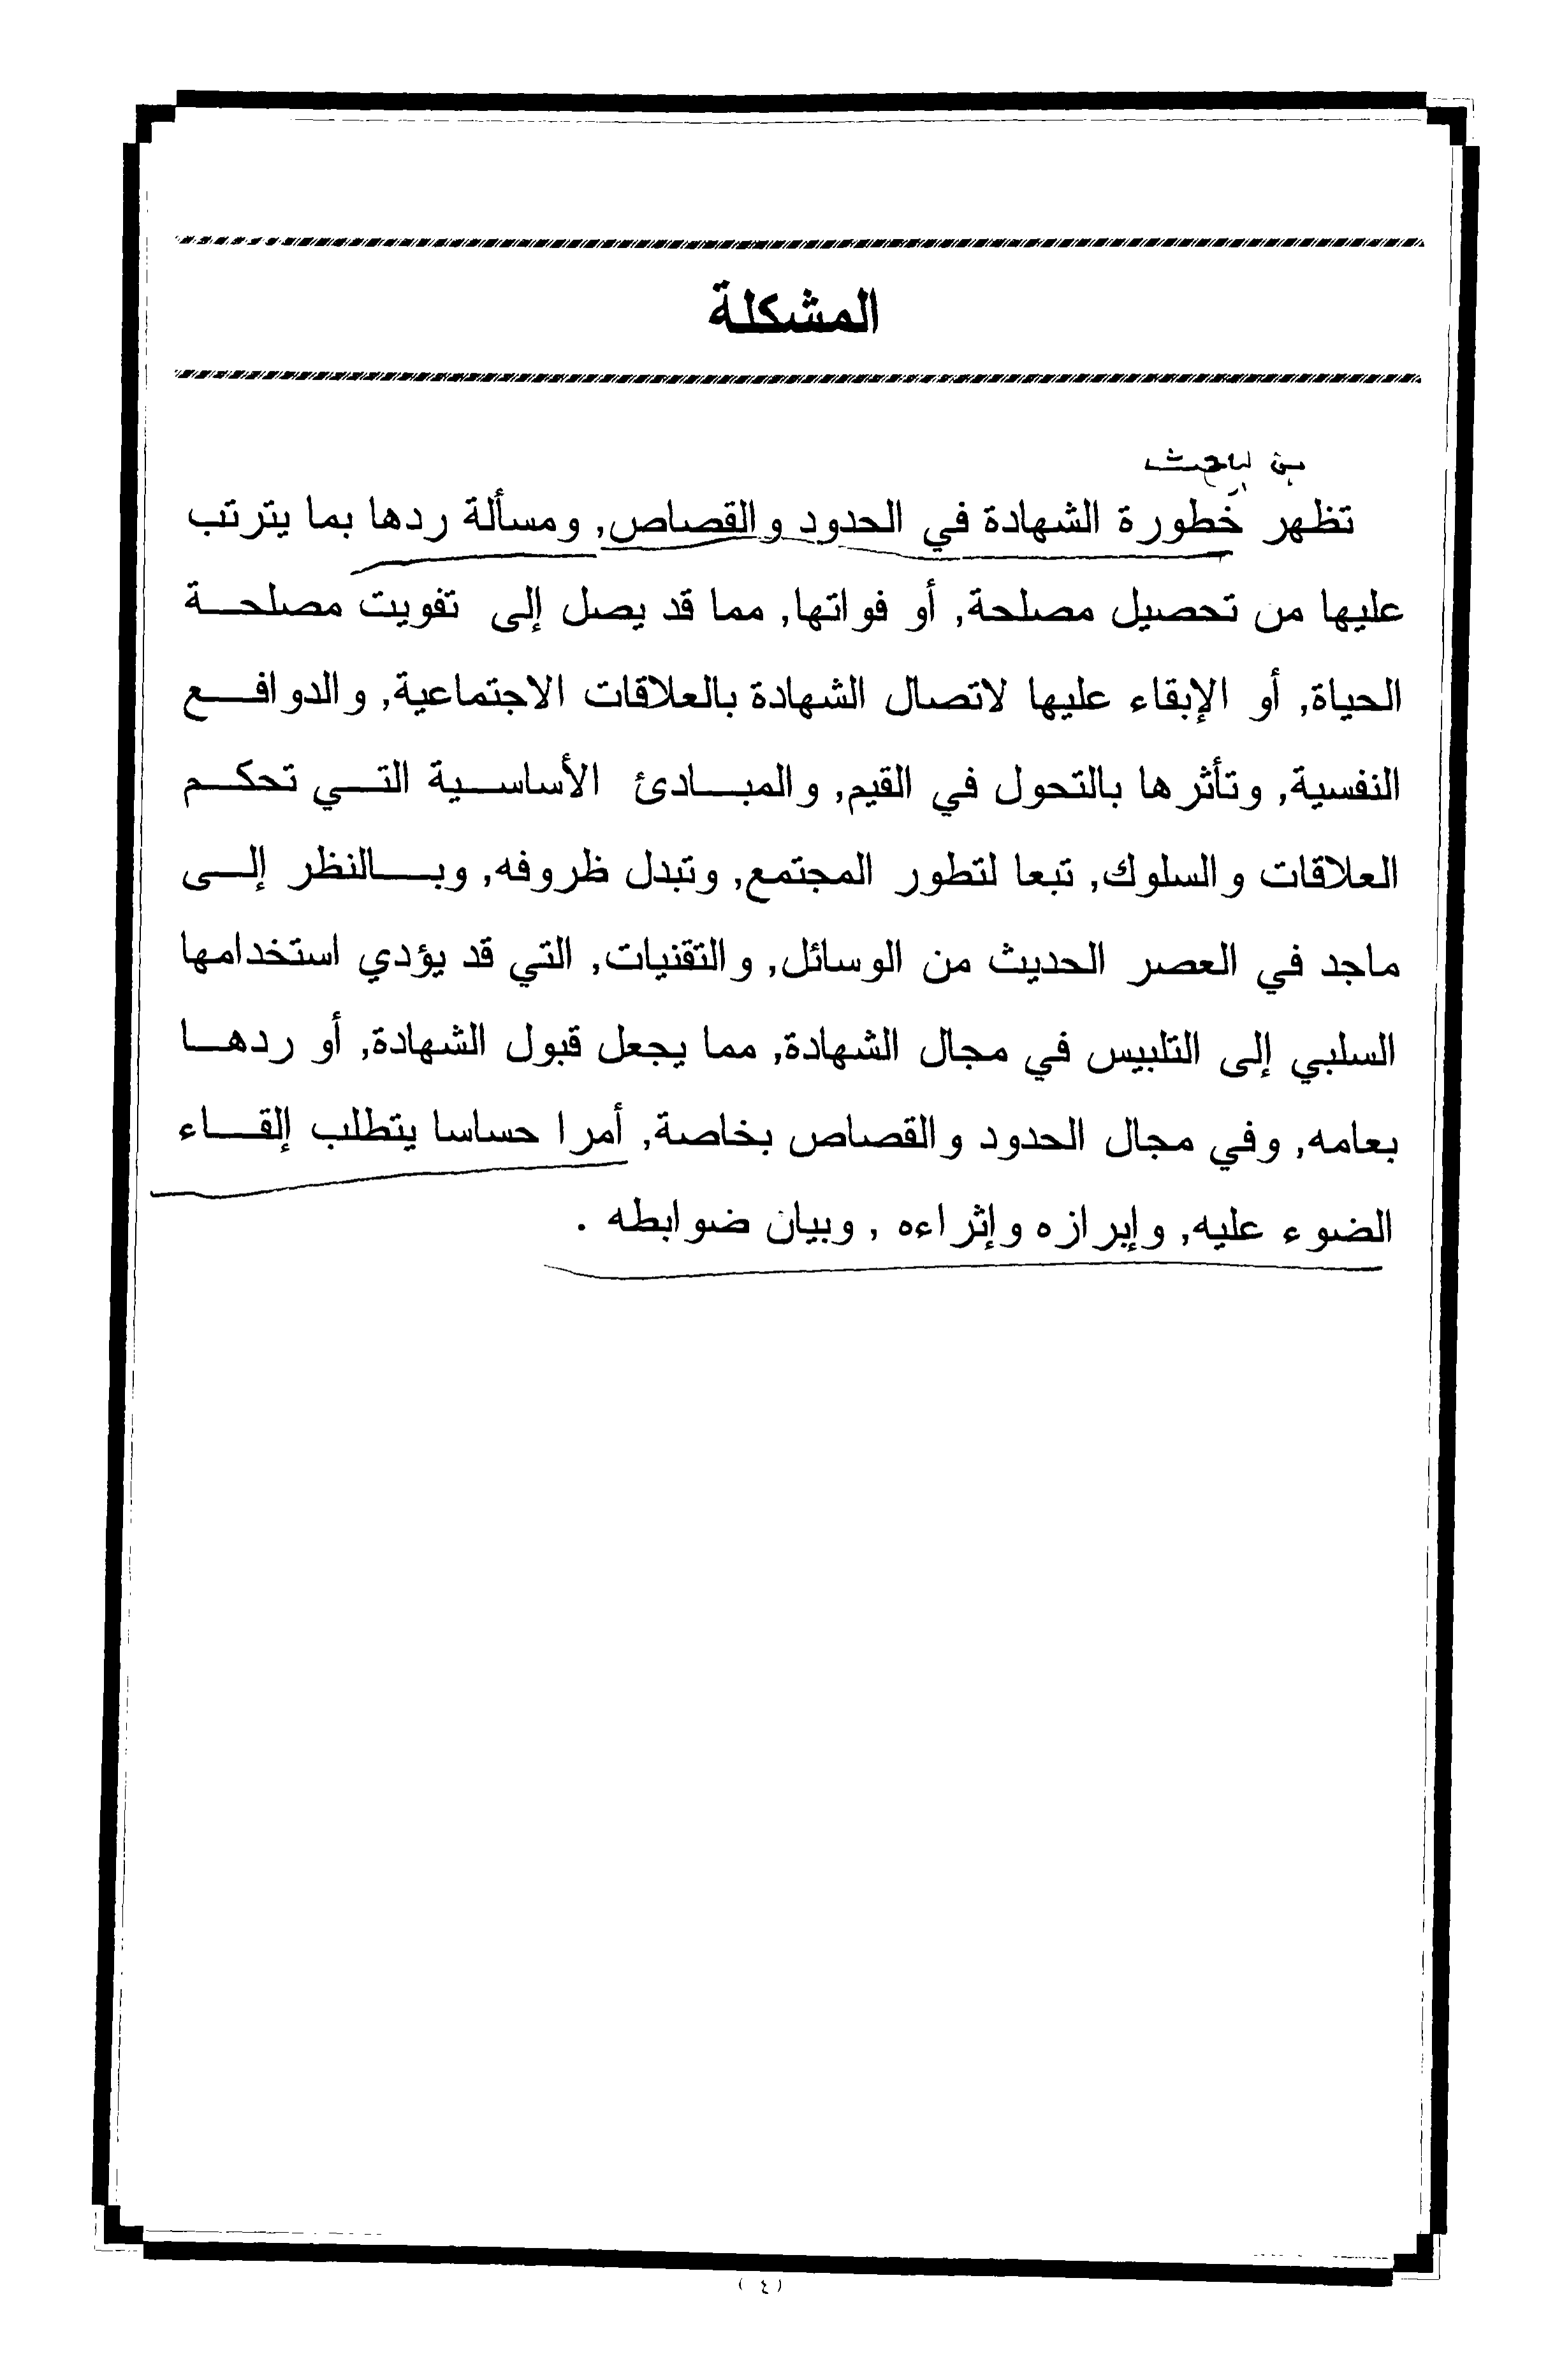 المشكلة
بين الباحث
تظهر خطورة الشهادة في الحدود والقصاص, ومسألة ردها بما يترتب
عليها من تحصيل مصلحة, أو فواتها, مما قد يصل إلى تفويت مصلحة
الحياة, أو الإبقاء عليها لاتصال الشهادة بالعلاقات الاجتماعية, والدوافع
النفسية, وتأثرها بالتحول في القيم, والمبادئ الأساسية التي تحكم
العلاقات والسلوك, تبعا لتطور المجتمع, وتبدل ظروفه, وبالنظر إلى
ماجد في العصر الحديث من الوسائل, والتقنيات, التي قد يؤدي استخدامها
السلبي إلى التلبيس في مجال الشهادة, مما يجعل قبول الشهادة, أو ردها
بعامه, وفي مجال الحدود والقصاص بخاصة, أمرا حساسا يتطلب إلقاء
الضوء عليه, وإبرازه وإثراءه , وبيان ضوابطه .
( ٤ )